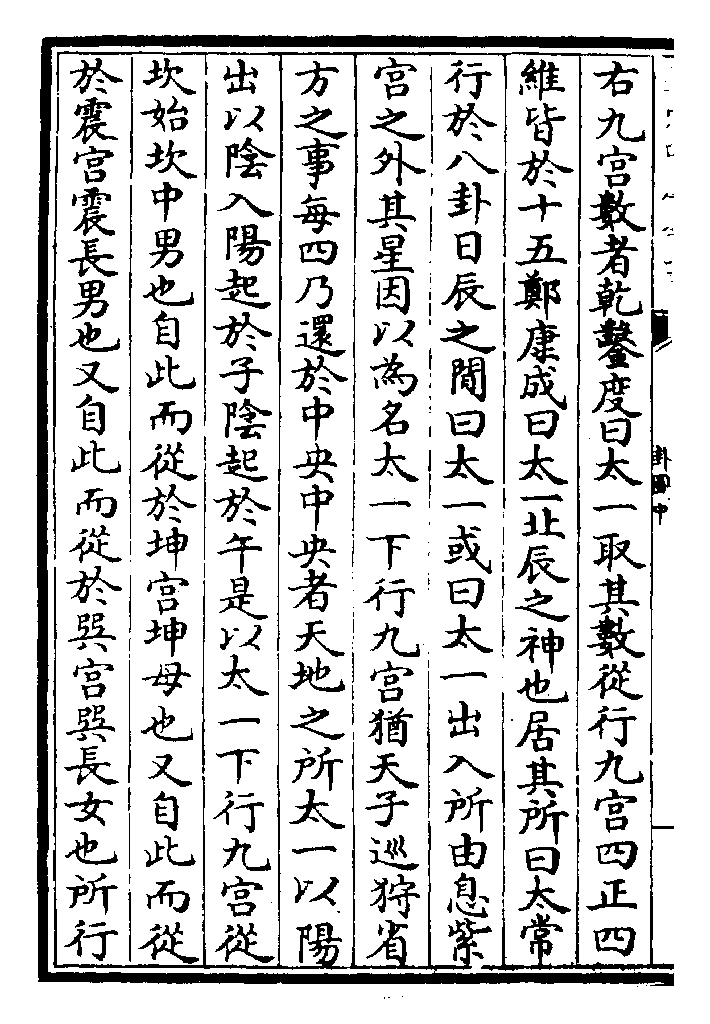 右九宫數者乾鑿度曰太一取其數從行九宫四正四
維皆於十五鄭康成曰太一北辰之神也居其所曰太常
行於八卦日辰之間曰太一或曰太一出入所由息紫
宫之外其星因以為名太一下行九宫猶天子巡狩省
方之事每四乃還於中央中央者天地之所太一以陽
出以陰入陽起於子陰起於午是以太一下行九宫從
坎始坎中男也自此而從於坤宫坤母也又自此而從
於震宫震長男也又自此而從於巽宫巽長女也所行
卦圖中